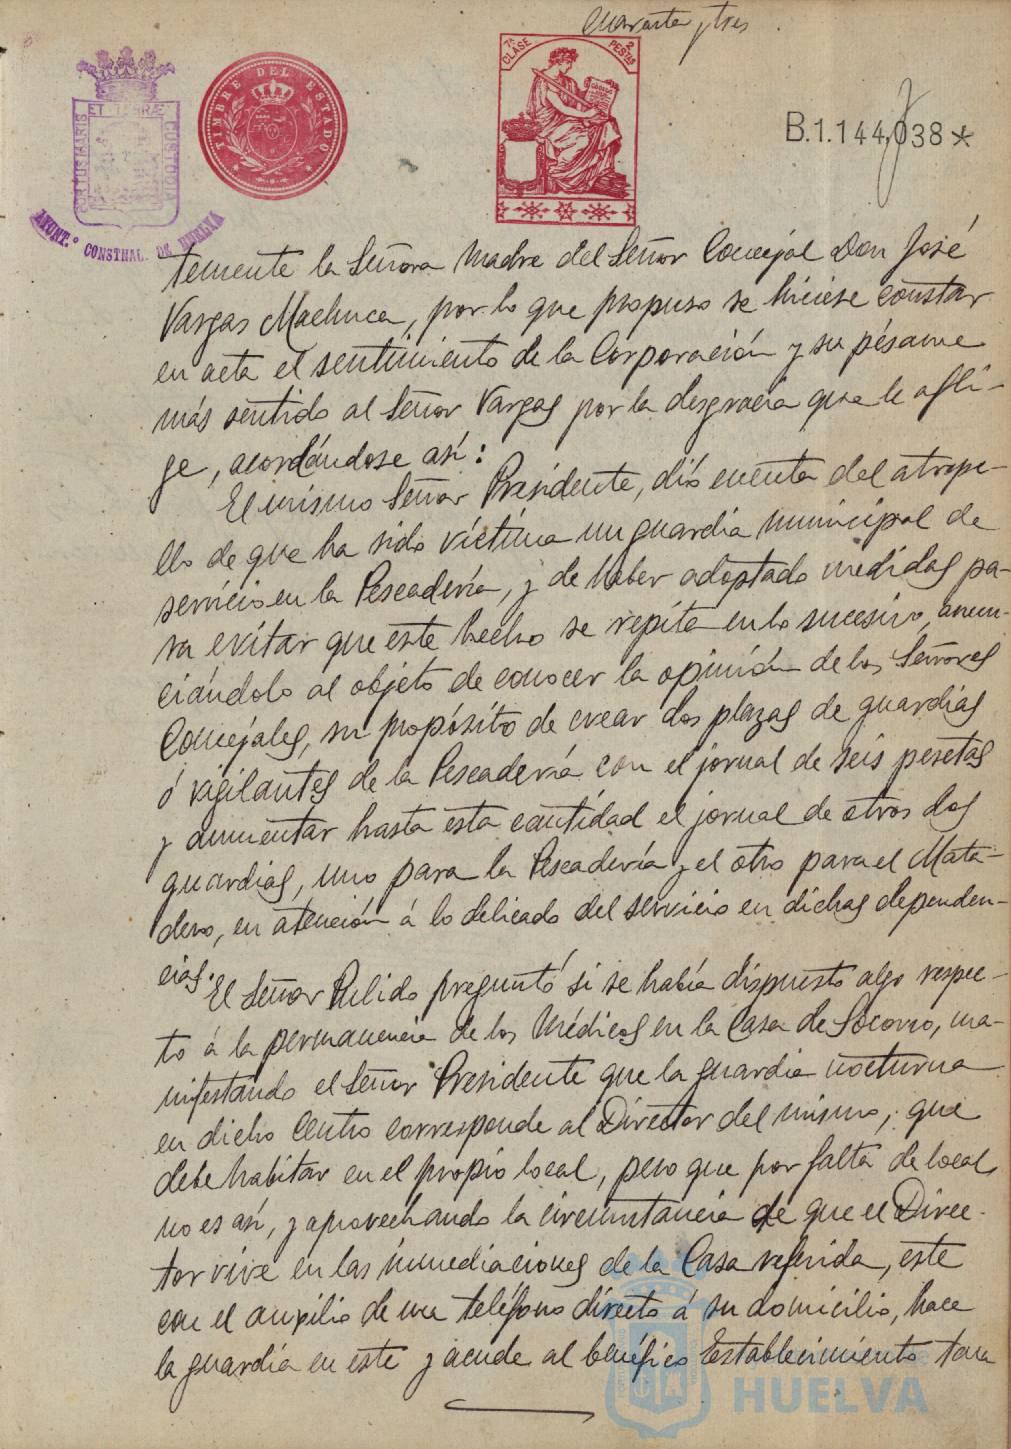 cuarenta y tres
7ª CLASE
2 PESETAS
TIMBRE DEL ESTADO
PORTUS MARIS ET TERRÆ CUSTODIA
AYUNT.º CONSTNAL. DE HUELVA
B.1.144,038*
temente la Señora madre del Señor Concejal Don José
Vargas Machuca, por lo que propuso se hiciese constar
en acta el sentimiento de la Corporación y su pésame
más sentido al Señor Vargas por la desgracia que le afli-
ge, acordándose así:
El mismo Señor Presidente, dió cuenta del atrope-
llo de que ha sido víctima un guardia municipal de
servicio en la Pescadería, y de haber adoptado medidas pa-
ra evitar que este hecho se repita en lo sucesivo, anun-
ciándolo al objeto de conocer la opinión de los Señores
Concejales, su propósito de crear dos plazas de guardias
ó vigilantes de la Pescadería con el jornal de seis pesetas
y aumentar hasta esta cantidad el jornal de otros dos
guardias, uno para la Pescadería y el otro para el Mata-
dero, en atención á lo delicado del servicio en dichas dependen-
cias.
El Señor Pulido preguntó si se había dispuesto algo respec-
to á la permanencia de los Médicos en la Casa de Socorro, ma-
nifestando el Señor Presidente que la guardia nocturna
en dicho Centro corresponde al Director del mismo, que
debe habitar en el propio local, pero que por falta de local
no es así, y aprovechando la circunstancia de que el Direc-
tor vive en las inmediaciones de la Casa referida, este
con el auxilio de un teléfono directo á su domicilio, hace
la guardia en este y acude al benéfico Establecimiento tan
HUELVA